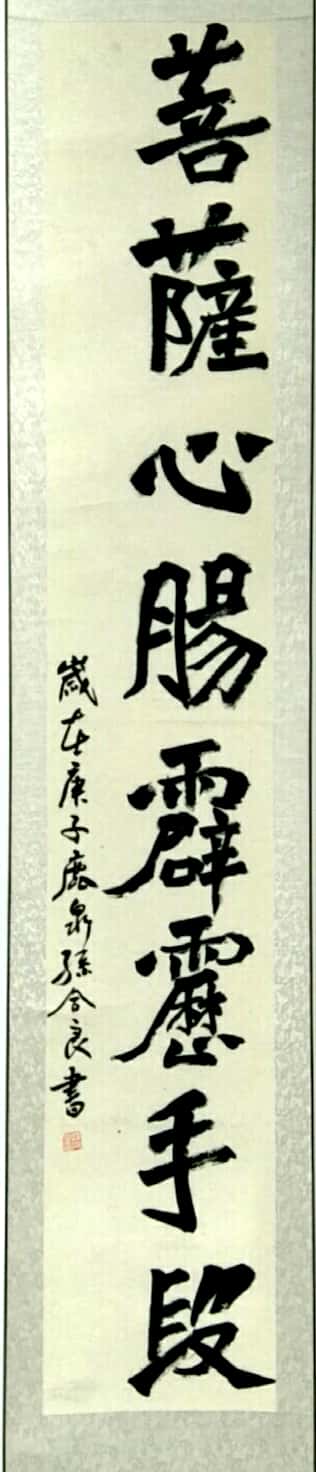 菩薩心腸霹靂手段
歲在庚子鹿泉孫合良書